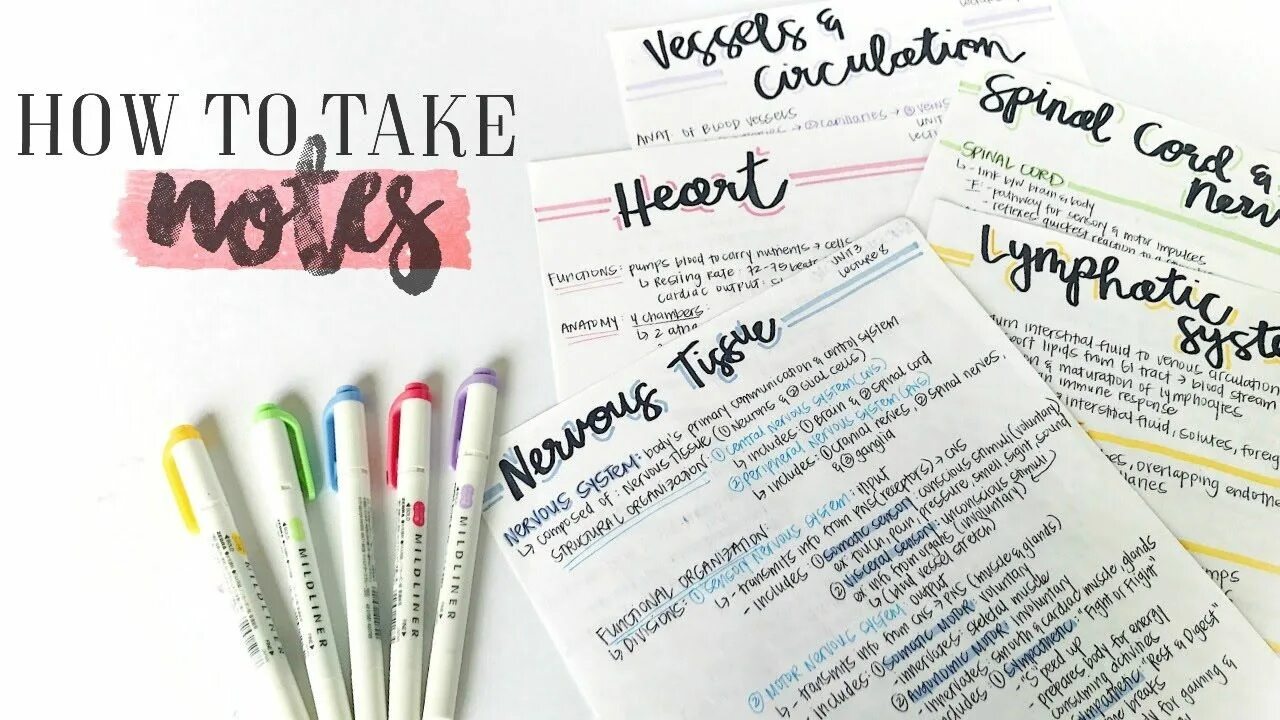 HOW TO TAKE
notes
Vessels &
circulation
ANAT. OF BLOOD VESSELS
→ ② capillaries → ③ veins
UNIT
Spinal Cord &
SPINAL CORD
↳ - link b/w brain & body
- pathway for sensory & motor impulses
- reflexes: quickest reaction to a
Heart
FUNCTIONS: pumps blood to carry nutrients → cells
↳ Resting rate: 72-75 beats
cardiac output:
ANATOMY: 4 chambers:
Lymphatic
interstitial fluid to venous circulation
lipids from GI tract → blood stream
& maturation of lymphocytes
immune response
interstitial fluid, solutes,
overlapping
UNIT 3
Lecture 8
Nervous Tissue
NERVOUS SYSTEM: body's primary communication & control system
↳ composed of: nervous tissue (① Neurons & ② Glial cells)
STRUCTURAL ORGANIZATION: ① central nervous system (CNS)
↳ includes: ① brain & ② spinal cord
② peripheral nervous system (PNS)
↳ includes: ① cranial nerves, ② spinal nerves,
& ③ ganglia
FUNCTIONAL ORGANIZATION:
↳ Divisions: ① SENSORY NERVOUS SYSTEM: input
↳ - transmits info from PNS (receptors) → CNS
- includes: ① somatic sensory: conscious stimuli (voluntary)
ex touch, pain, pressure, smell, sight, sound
② visceral sensory: unconscious stimuli
ex info from organs (involuntary)
↳ (and vessel stretch)
② MOTOR NERVOUS SYSTEM: output
↳ - transmits info from CNS → PNS (muscle & glands)
- includes: ① somatic motor: voluntary
- innervates: skeletal muscle
② Autonomic motor: involuntary
- innervates: smooth & cardiac muscle, glands
- includes: ① sympathetic: "Fight or Flight"
- "speed up"
- prepares body for energy
consuming activities
"Rest & Digest"
for gaining &
MILDLINER
MILDLINER
MILDLINER
MILDLINER
MILDLINER